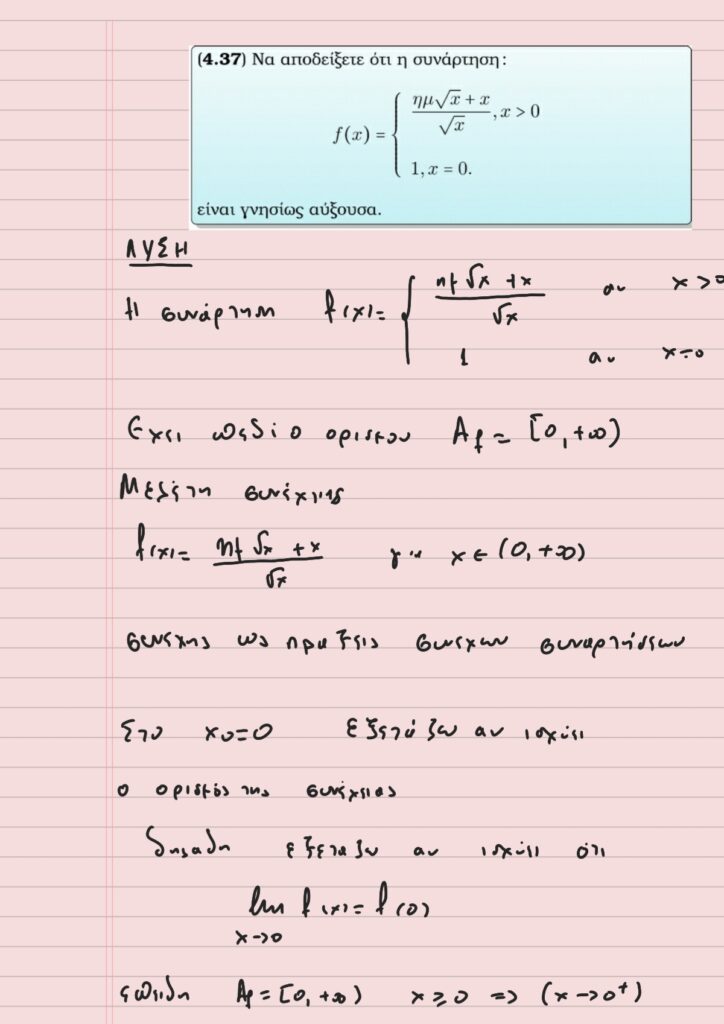 (4.37) Να αποδείξετε ότι η συνάρτηση:
f(x) = { (ημ√x + x)/√x , x > 0
1, x = 0.
είναι γνησίως αύξουσα.
ΛΥΣΗ
Η συνάρτηση f(x) = { (ημ√x + x)/√x αν x > 0
1 αν x = 0
Εχει πεδίο ορισμου A_f = [0, +∞)
Μελέτη συνέχειας
f(x) = (ημ√x + x)/√x για x ∈ (0, +∞)
συνεχης ως πραξεις συνεχων συναρτήσεων
Στο x₀ = 0 εξετάζω αν ισχύει
ο ορισμός της συνέχειας
δηλαδη εξεταζω αν ισχύει ότι
lim f(x) = f(0)
x→0
επειδη A_f = [0, +∞) x ≥ 0 => (x→0⁺)